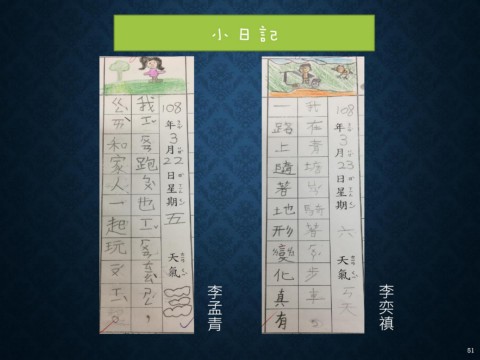 小日記
108年3月22日星期五 天氣
我 跑 也
和家人一起玩
李孟青
108年3月23日星期六 天氣 天
我在青 騎著 步車
一路上隨著地形變化真有
李奕禛
51